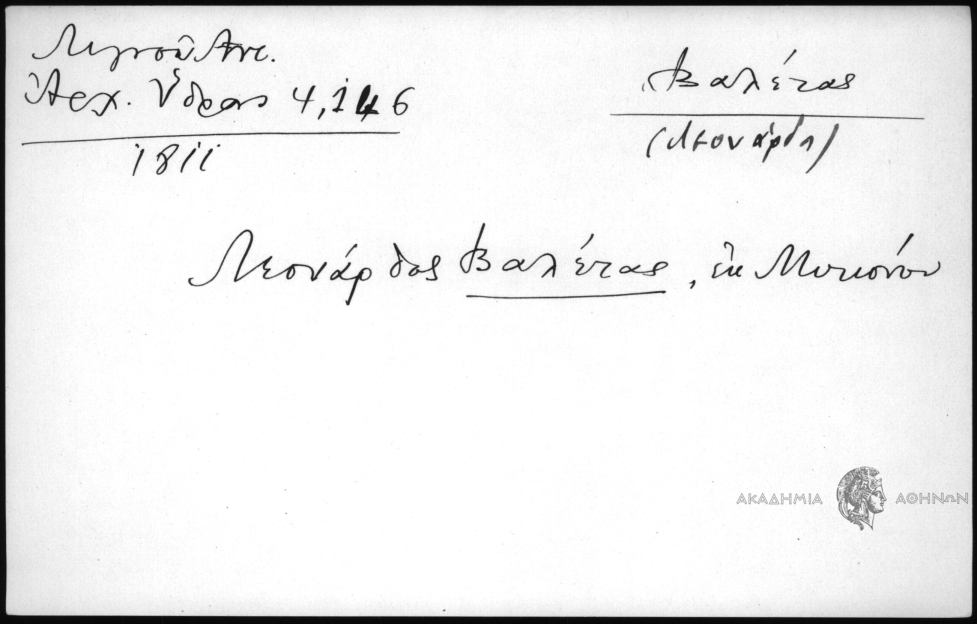 Λιγνοῦ Ἀντ.
Ἀρχ. Ὕδρας 4, 146
1811
Βαλέτας
(Λεονάρδη)
Λεονάρδος Βαλέτας, ἐκ Μυκόνου
ΑΚΑΔΗΜΙΑ ΑΘΗΝΩΝ